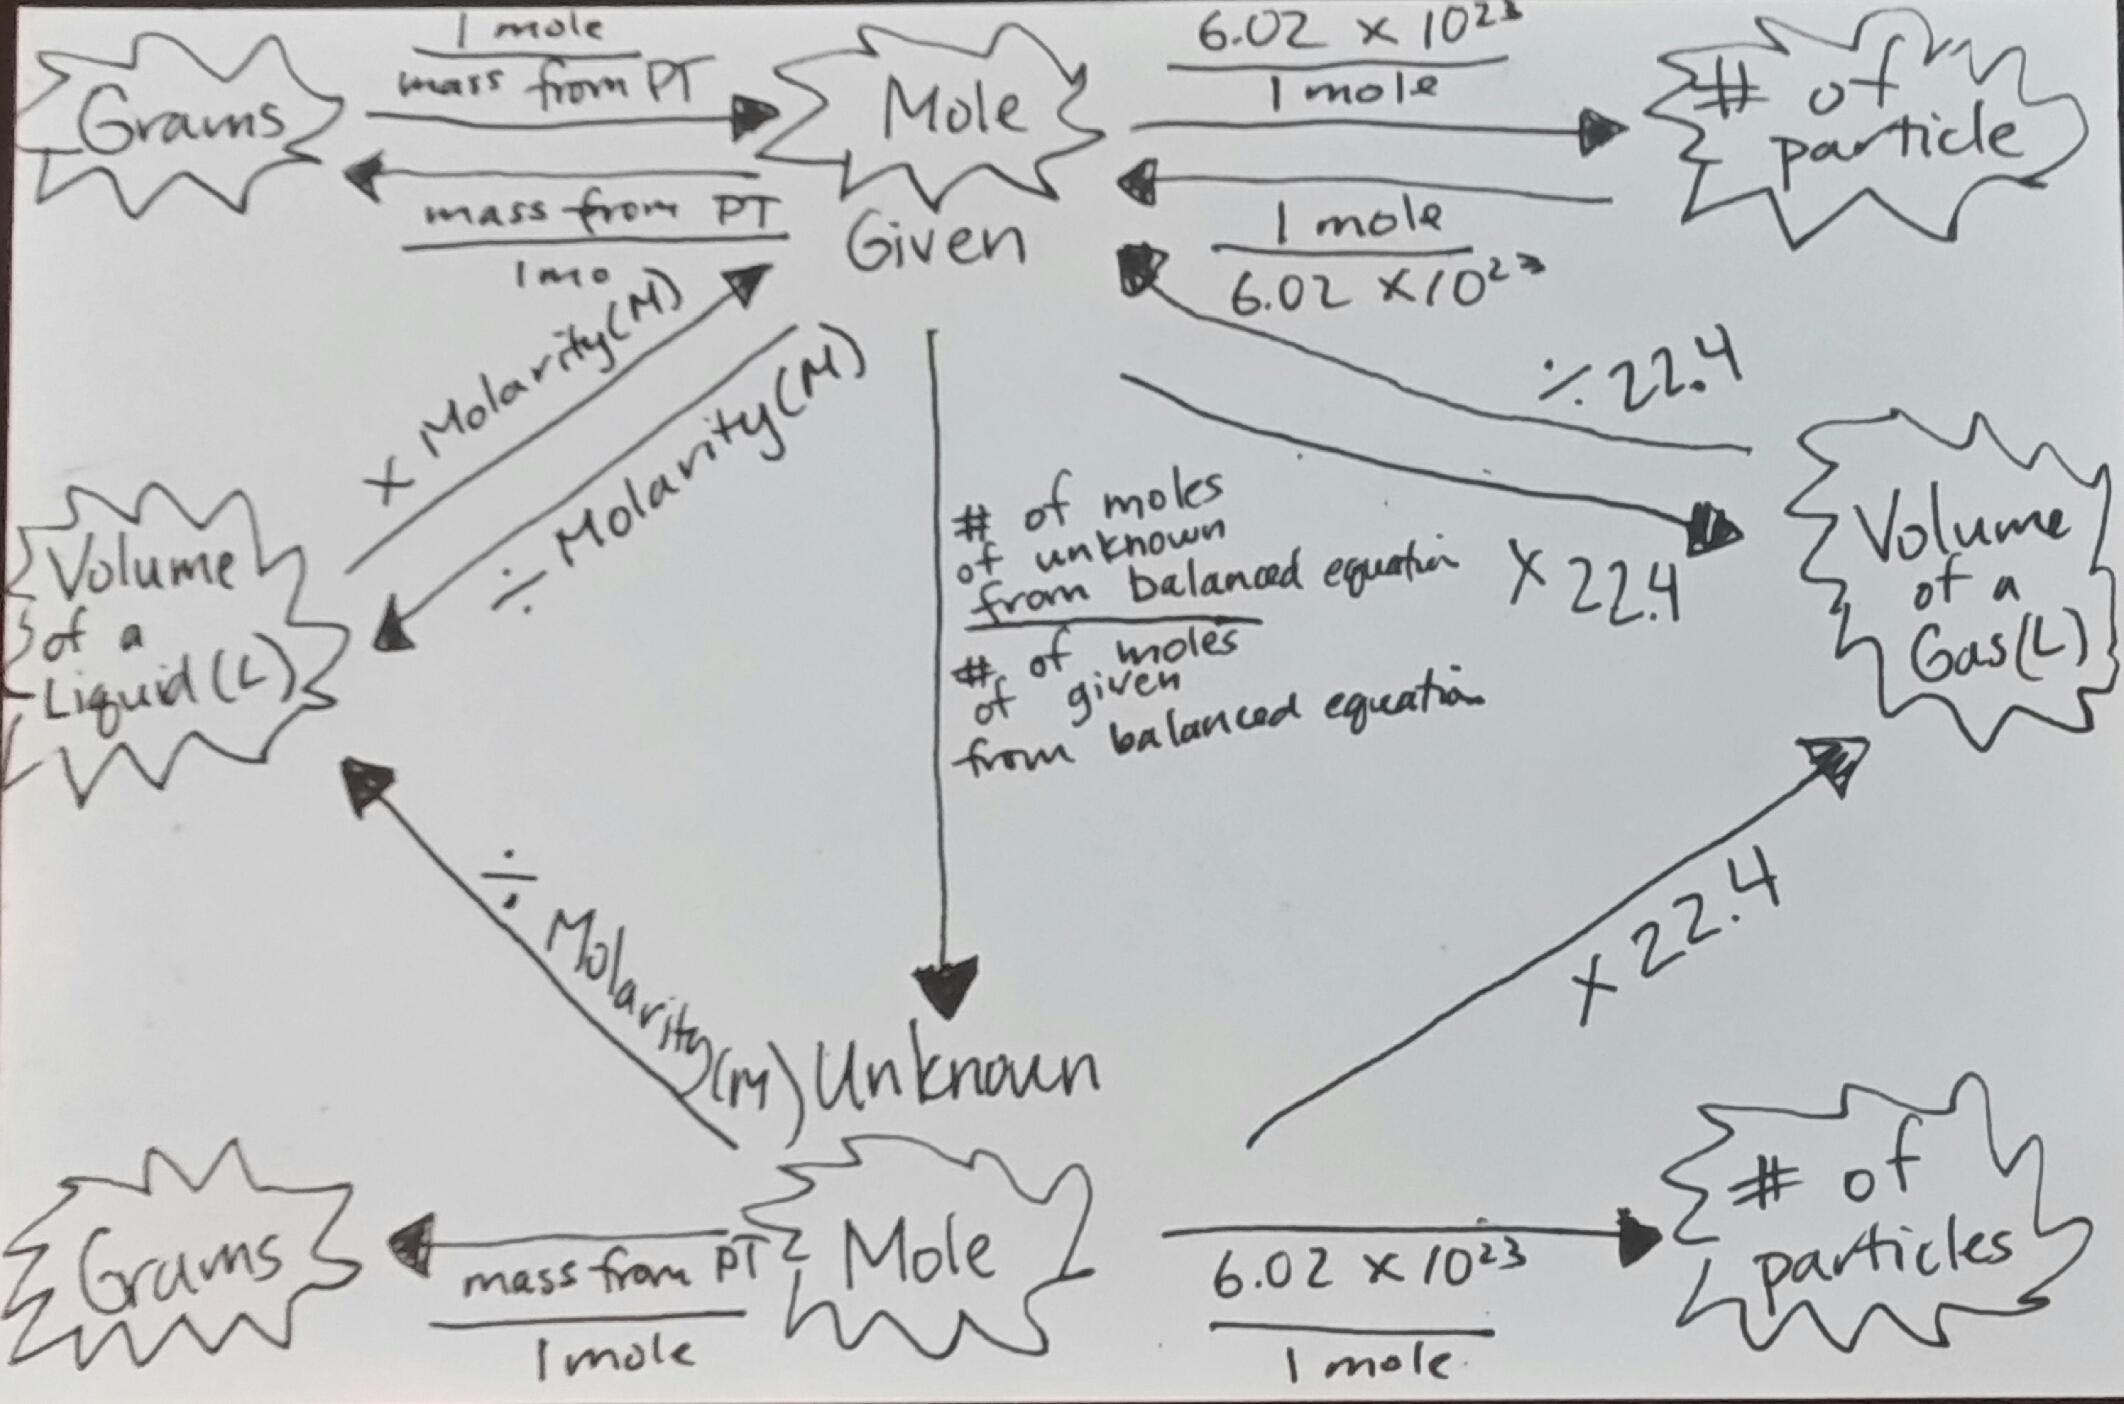 Grams
1 mole
mass from PT
mass from PT
1 mo
Mole
Given
6.02 × 10²³
1 mole
1 mole
6.02 × 10²³
# of
particle
× Molarity(M)
÷ Molarity(M)
÷ 22.4
× 22.4
Volume
of a
Liquid (L)
# of moles
of unknown
from balanced equation
# of moles
of given
from balanced equation
Volume
of a
Gas(L)
÷ Molarity(M)
× 22.4
Unknown
Grams
mass from PT
1 mole
Mole
6.02 × 10²³
1 mole
# of
particles